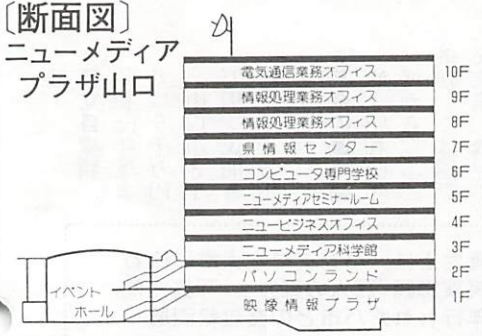 〔断面図〕
ニューメディア
プラザ山口
電気通信業務オフィス 10F
情報処理業務オフィス 9F
情報処理業務オフィス 8F
県情報センター 7F
コンピュータ専門学校 6F
ニューメディアセミナールーム 5F
ニュービジネスオフィス 4F
ニューメディア科学館 3F
パソコンランド 2F
映像情報プラザ 1F
イベント
ホール